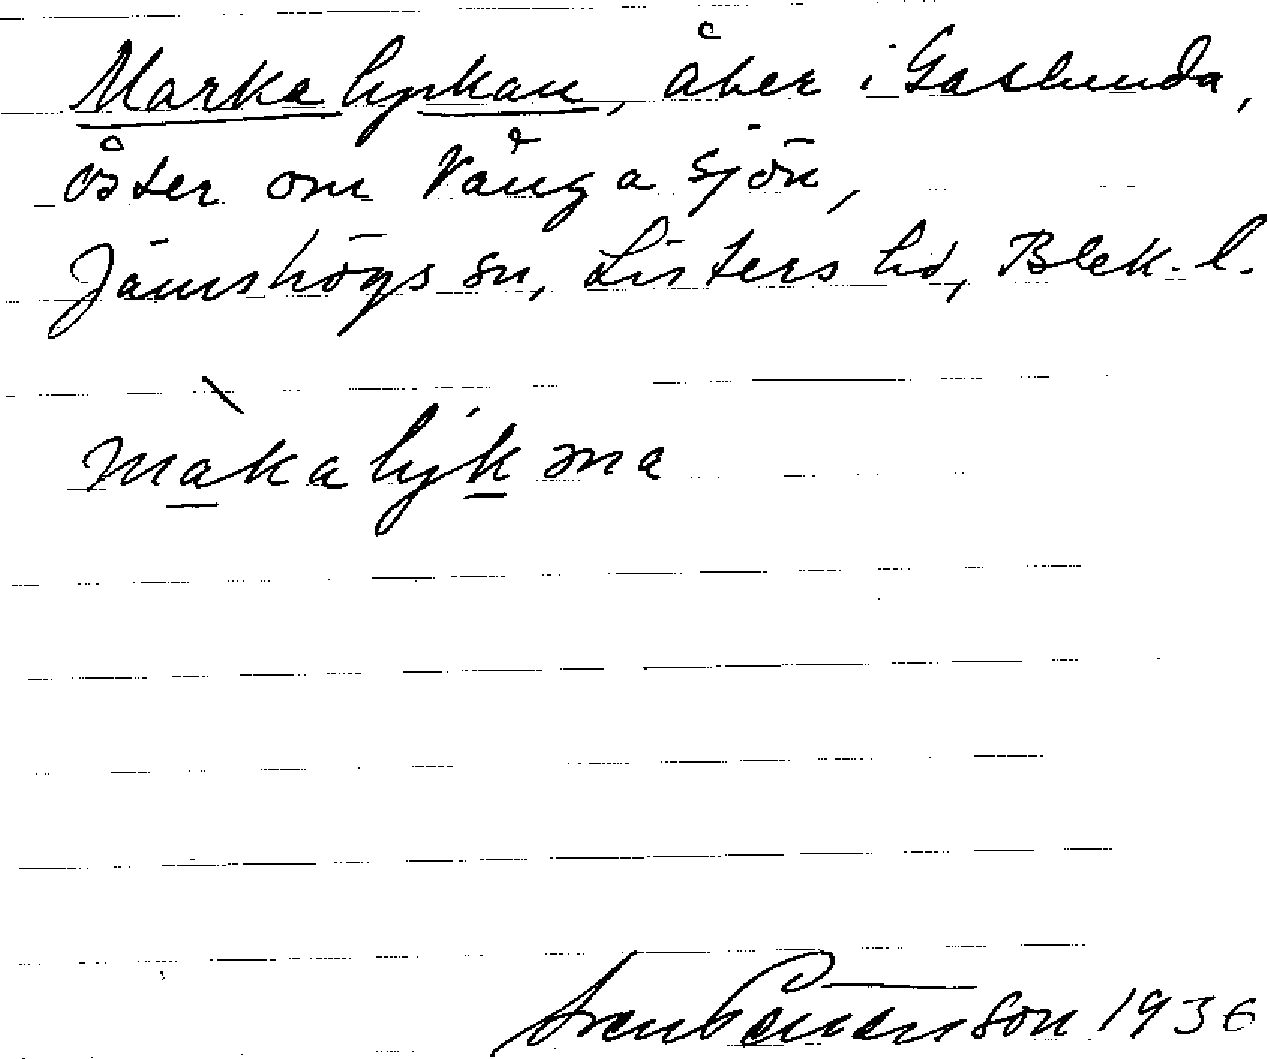 Markalyckan, åker i Gaslunda,
öster om Vånga sjön,
Jämshögs sn, Listers hd, Blek. l.
màkalyk ma
1936